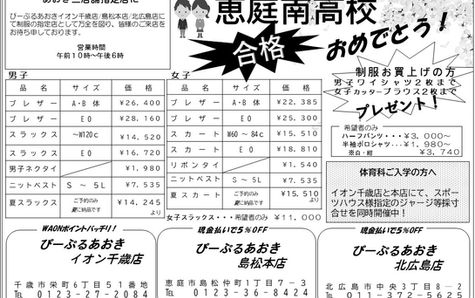 あおき三店舗指定店に
ぴーぷるあおきイオン千歳店/島松本店/北広島店に
て制服の指定店として万全を図り、皆様のご来店を
お待ち申しております。
営業時間
午前10時〜午後6時
恵庭南高校
合格
おめでとう!
制服お買上げの方
男子ワイシャツ2枚まで
女子カッターブラウス2枚まで
プレゼント!
男子
品名 サイズ 価格
ブレザー A・B体 ¥26,400
ブレザー EO ¥28,160
スラックス 〜W120c ¥14,520
スラックス EO ¥16,720
男子ネクタイ ¥1,980
ニットベスト S〜5L ¥7,535
夏スラックス ご予約のみ 夏に納品です ¥14,245より
女子
品名 サイズ 価格
ブレザー A・B体 ¥22,385
ブレザー EO ¥25,300
スカート W60〜84c ¥15,510
スカート EO ¥18,810
リボンタイ ¥1,540
ニットベスト S〜5L ¥7,535
夏スカート ご予約のみ 夏に納品です ¥15,510より
女子スラックス・・・希望者のみ ¥11,000
希望者のみ
ハーフパンツ・・・¥3,000〜
半袖ポロシャツ・・¥1,980〜
※白・紺 ¥3,740
体育科ご入学の方へ
イオン千歳店と本店にて、スポー
ツハウス様指定のジャージ等採寸
会を同時開催中!
WAONポイントバッチリ!
ぴーぷるあおき
イオン千歳店
千歳市栄町6丁目51番地
℡ 0123-27-2084
現金払いで5%OFF
ぴーぷるあおき
島松本店
恵庭市島松仲町1丁目7-3
℡ 0123-36-8424
現金払いで5%OFF
ぴーぷるあおき
北広島店